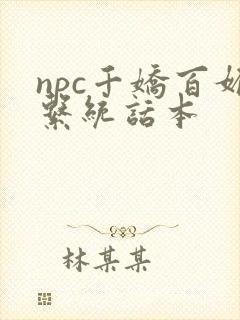 npc千嬌百媚
繫統話本
林某某